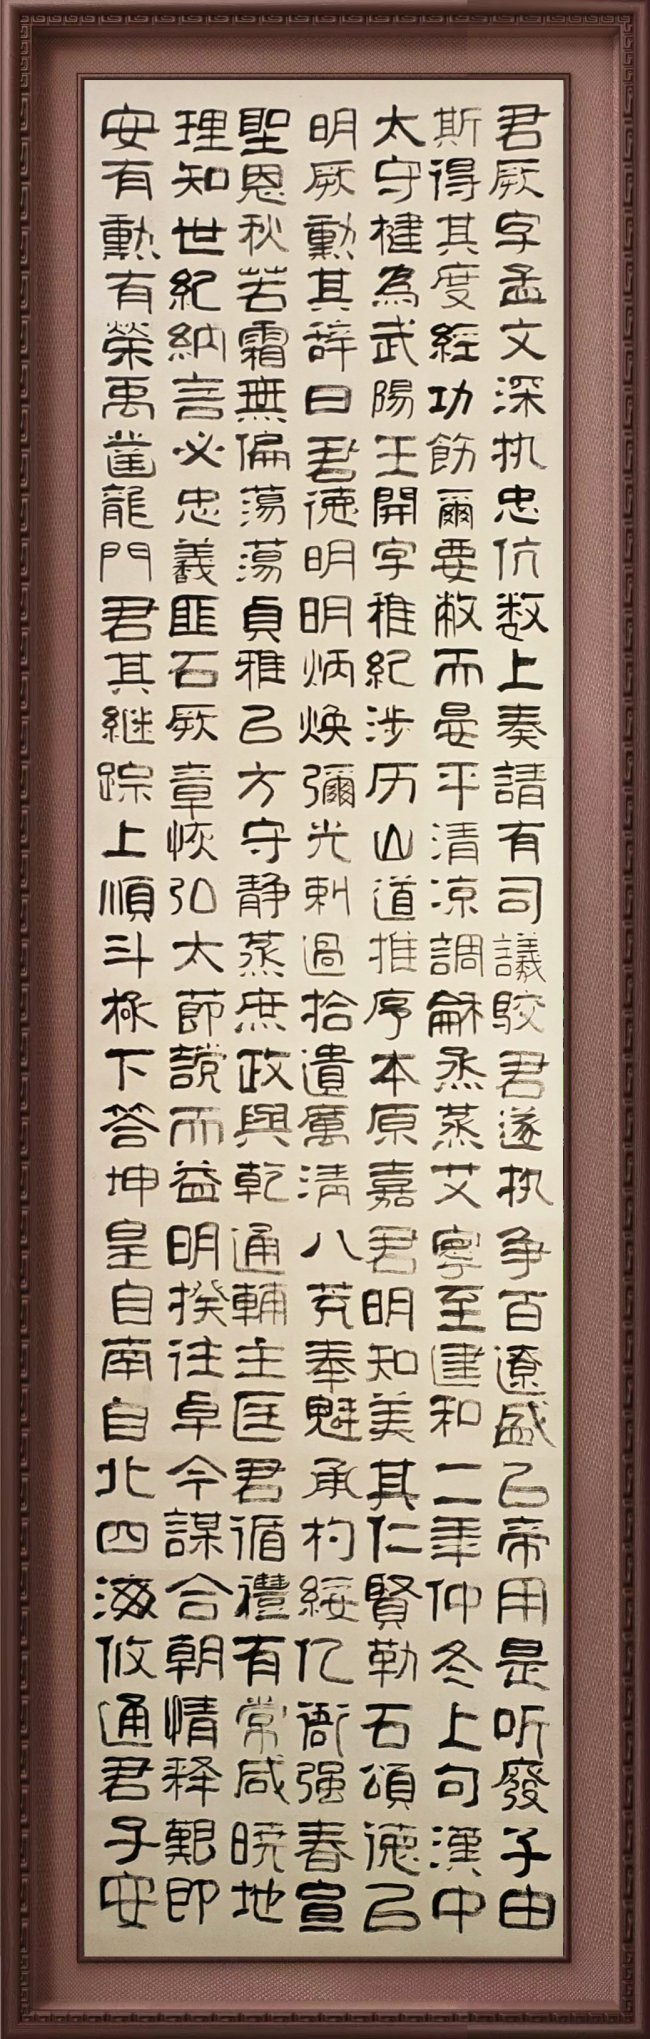 君厥字孟文深执忠伉数上奏請有司議駮君遂执争百遼咸㠯帝用是听廢子由
斯得其度經功飭爾要敝而晏平清凉調龢烝蒸艾寧至建和二年仲冬上旬漢中
太守楗為武陽王開字稚紀涉历山道推序本原嘉君明知美其仁賢勒石頌德㠯
明厥勳其辞曰君德明明炳焕彌光刺過拾遺厲清八荒奉魁承杓綏亿衙强春宣
聖恩秋若霜無偏蕩蕩貞雅㠯方守静蒸庶政與乾通輔主匡君循禮有常咸曉地
理知世紀納言必忠義匪石厥章恢弘大節讜而益明揆往卓今謀合朝情释艱即
安有勳有榮禹鑿龍門君其継踪上順斗極下答坤皇自南自北四海攸通君子安